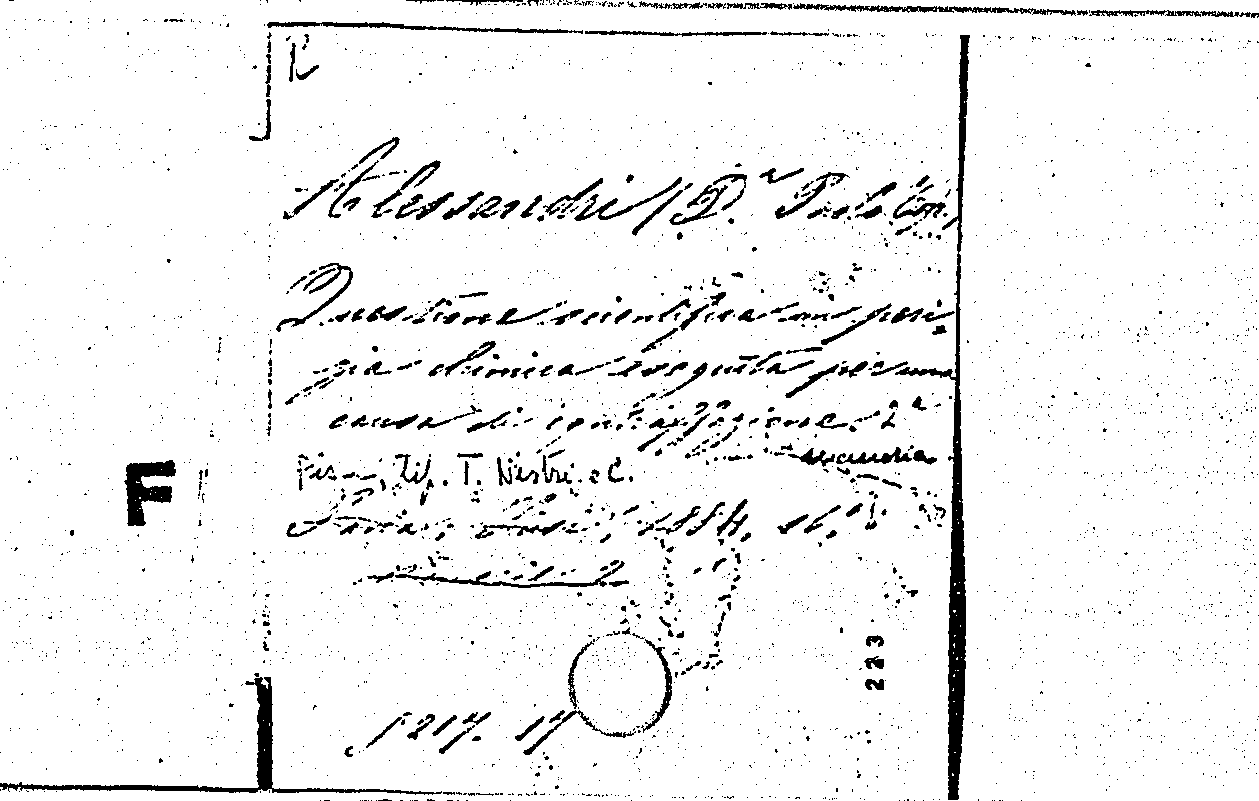 R
Alessandri (D.r Paolo Em.)
Questione scientifica in peri-
zia chimica eseguita per una
causa di contraffazione. 2a
memoria
Pisa, Tip. T. Nistri e C.
1884. 16.°
F
223
1217. 17